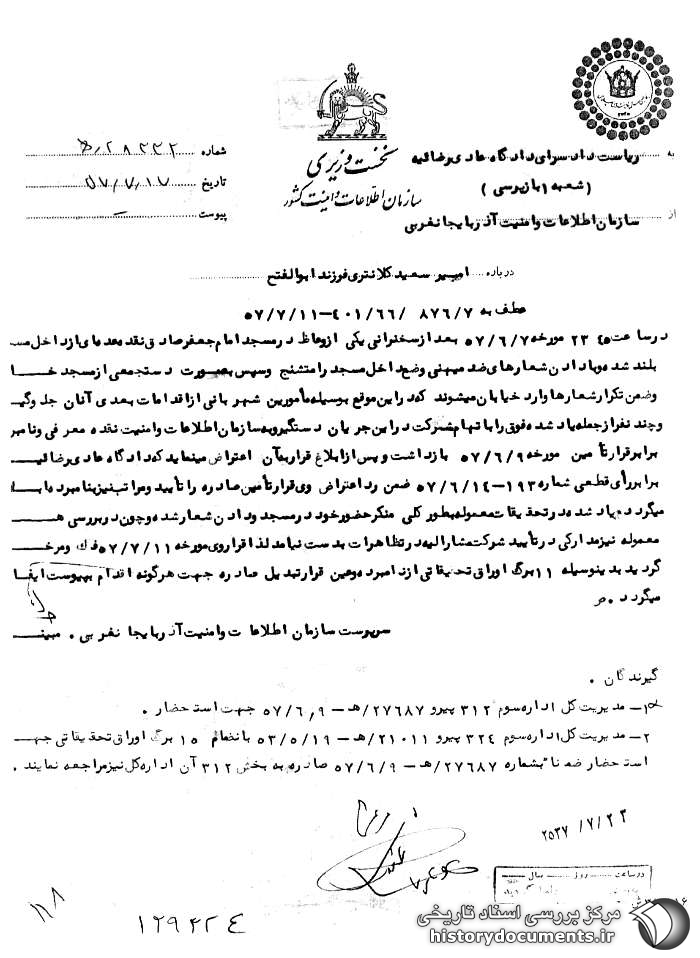 نخست وزیری
سازمان اطلاعات و امنیت کشور
به ریاست دادسرای دادگاه عادی رضائیه
(شعبه ۱ بازپرسی)
از سازمان اطلاعات و امنیت آذربایجانغربی
شماره ۲۸۲۳۲/ه
تاریخ ۵۷/۷/۱۷
پیوست
درباره امیر سعید کلانتری فرزند ابوالفتح
عطف به ۸۷۶/۷ /۴۰۱/۶۶-۵۷/۷/۱۱
در ساعت ۲۳۴۵ مورخه ۵۷/۶/۷ بعد از سخنرانی یکی از وعاظ در مسجد امام جعفر صادق نقده عده‌ای از داخل مسـ
بلند شده و با دادن شعارهای ضد میهنی وضع داخل مسجد را متشنج وسپس بصورت دستجمعی از مسجد خا
وضمن تکرار شعارها وارد خیابان میشوند که در این موقع بوسیله مأمورین شهربانی از اقدامات بعدی آنان جلوگیـ
وچند نفر از جمله یاد شده فوق را باتهام شرکت در این جریان دستگیر و به سازمان اطلاعات و امنیت نقده معرفی و نامبر
برابر قرار تأمین مورخه ۵۷/۶/۹ بازداشت و پس از ابلاغ قرار بآن اعتراض مینماید که دادگاه عادی رضائیـ
برابر رأی قطعی شماره ۱۹۳-۵۷/۶/۱۴ ضمن رد اعتراض وی قرار تأمین صادره را تأیید و مراتب نیز بنامبرده ابلا
میگردد یاد شده در تحقیقات معموله بطور کلی منکر حضور خود در مسجد و دادن شعار شده و چون در بررسی هـ
معموله نیز مدارکی در تأیید شرکت مشارالیه در تظاهرات بدست نیامد لذا قرار وی مورخه ۵۷/۷/۱۱ فک و مرخـ
گردید بدینوسیله ۱۱ برگ اوراق تحقیقاتی از نامبرده وعین قرار تبدیل صادره جهت هرگونه اقدام بپیوست ایفا
میگردد. م
سرپرست سازمان اطلاعات و امنیت آذربایجانغربی.
گیرندگان.
۱- مدیریت کل اداره سوم ۳۱۲ پیرو ۲۷۶۸۷/هـ-۵۷/۶/۹ جهت استحضار.
۲- مدیریت کل اداره سوم ۳۲۴ پیرو ۲۱۰۱۱/هـ-۵۳/۵/۱۹ بانضمام ۱۵ برگ اوراق تحقیقاتی جهـ
استحضار ضمناً بشماره ۲۷۶۸۷/هـ-۵۷/۶/۹ صادره به بخش ۳۱۲ آن اداره کل نیز مراجعه نمایند.
۲۵۳۷/۷/۲۳
در ساعت روز سال
۱۲۹۴۲۴
مرکز بررسی اسناد تاریخی
historydocuments.ir